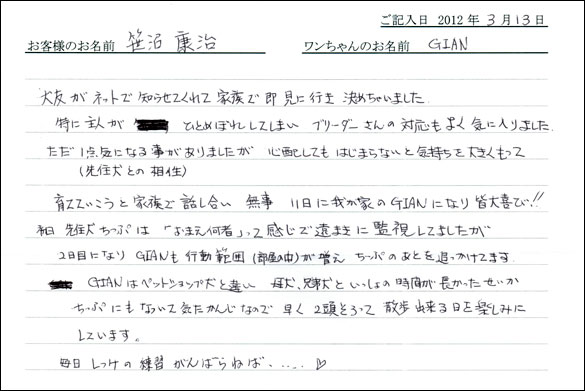 ご記入日 2012 年 3 月 13 日
お客様のお名前 笹沼 康治 ワンちゃんのお名前 GIAN
大友がネットで知らせてくれて家族で即見に行き決めちゃいました。
特に主人が ひとめぼれしてしまい ブリーダーさんの対応もよく気に入りました。
ただ1点気になる事がありましたが 心配してもはじまらないと気持ちを大きくもって
(先住犬との相性)
育てていこうと家族で話し合い 無事 11日に我が家のGIANになり皆大喜び!!
初日 先住犬ちっぷは「おまえ何者」って感じで遠まきに監視してましたが
2日目になりGIANも行動範囲(部屋の中)が増え ちっぷのあとを追っかけてます。
GIANはペットショップ犬と違い 母犬、兄弟犬といっしょの時間が長かったせいか
ちっぷにもなついて気たかんじなので 早く2頭そろって散歩出来る日を楽しみに
しています。
毎日 しつけの練習がんばらねば、.....♡